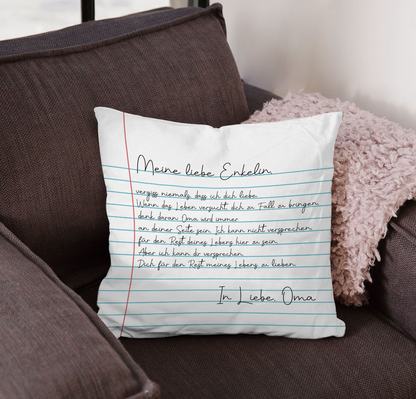 Meine liebe Enkelin,
vergiss niemals, dass ich dich liebe.
Wenn das Leben versucht dich zu Fall zu bringen,
denk daran: Oma wird immer
an deiner Seite sein. Ich kann nicht versprechen
für den Rest deines Lebens hier zu sein.
Aber ich kann dir versprechen,
Dich für den Rest meines Lebens zu lieben.
In Liebe, Oma